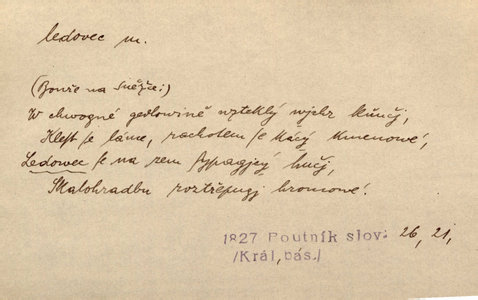 ledovec m.
(Bouře na Sněžce:)
W chwogné gedlowině wzteklý wjchr kňučj,
Klest se láme, rachotem se kácý kmenowé,
Ledowec se na zem sypagjcý hučj,
Skalohradbu roztřepugj hromowé.
1827 Poutník slov. 26, 21,
/Král, bás./